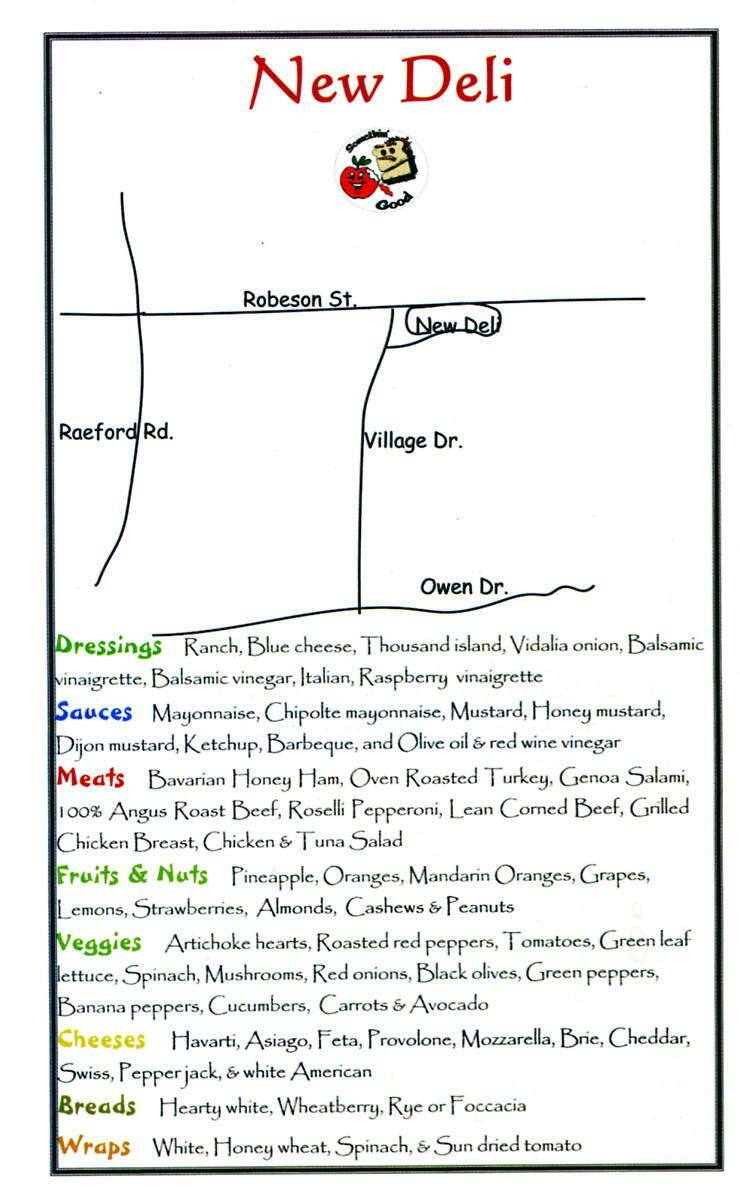 New Deli
Somethin'
Good
Robeson St.
New Deli
Raeford Rd.
Village Dr.
Owen Dr.
Dressings Ranch, Blue cheese, Thousand island, Vidalia onion, Balsamic
vinaigrette, Balsamic vinegar, Italian, Raspberry vinaigrette
Sauces Mayonnaise, Chipolte mayonnaise, Mustard, Honey mustard,
Dijon mustard, Ketchup, Barbeque, and Olive oil & red wine vinegar
Meats Bavarian Honey Ham, Oven Roasted Turkey, Genoa Salami,
100% Angus Roast Beef, Roselli Pepperoni, Lean Corned Beef, Grilled
Chicken Breast, Chicken & Tuna Salad
Fruits & Nuts Pineapple, Oranges, Mandarin Oranges, Grapes,
Lemons, Strawberries, Almonds, Cashews & Peanuts
Veggies Artichoke hearts, Roasted red peppers, Tomatoes, Green leaf
lettuce, Spinach, Mushrooms, Red onions, Black olives, Green peppers,
Banana peppers, Cucumbers, Carrots & Avocado
Cheeses Havarti, Asiago, Feta, Provolone, Mozzarella, Brie, Cheddar,
Swiss, Pepper jack, & white American
Breads Hearty white, Wheatberry, Rye or Foccacia
Wraps White, Honey wheat, Spinach, & Sun dried tomato